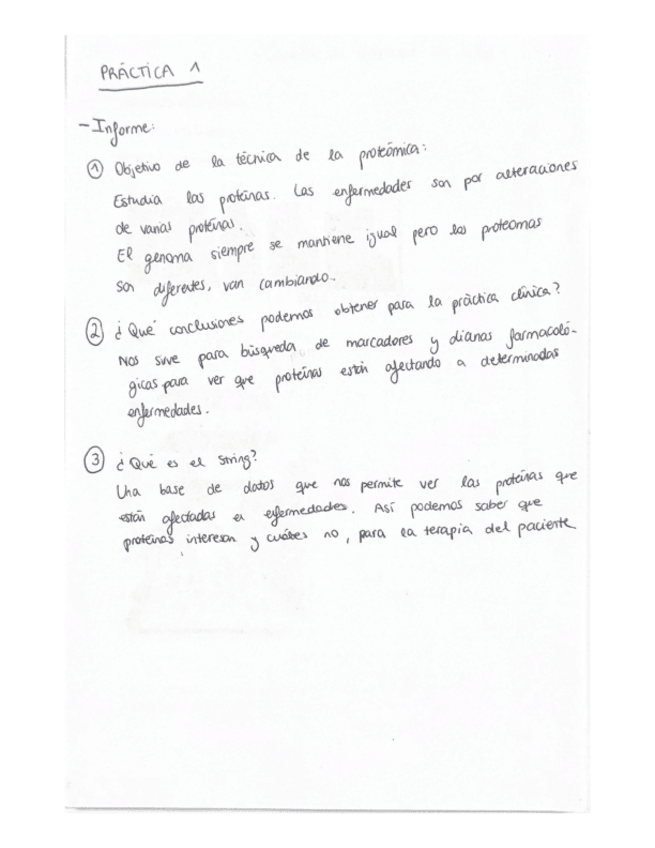 PRÁCTICA 1
- Informe:
① Objetivo de la técnica de la proteómica:
Estudia las proteínas. Las enfermedades son por alteraciones
de varias proteínas.
El genoma siempre se mantiene igual pero los proteomas
son diferentes, van cambiando.
② ¿Qué conclusiones podemos obtener para la práctica clínica?
Nos sirve para búsqueda de marcadores y dianas farmacoló-
gicas para ver que proteínas están afectando a determinadas
enfermedades.
③ ¿Qué es el String?
Una base de datos que nos permite ver las proteínas que
están afectadas en enfermedades. Así podemos saber que
proteínas interesan y cuáles no, para la terapia del paciente